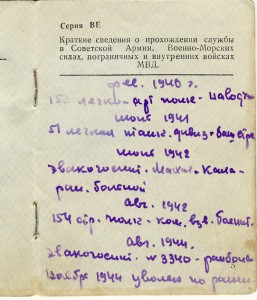 Серия ВЕ
Краткие сведения о прохождении службы
в Советской Армии, Военно-Морских
силах, пограничных и внутренних войсках
МВД.
фев. 1940 г.
153 легко-арт полк-наводч
июнь 1941
51 легкая дивиз-баш стре
июнь 1942
эвакогоспит. Махач-Кала-
ран. больной
авг. 1942
154 стр. полк-ком. взв.
авг. 1944
Эвакогоспит. № 3340-
ноября 1944 уволен по ране